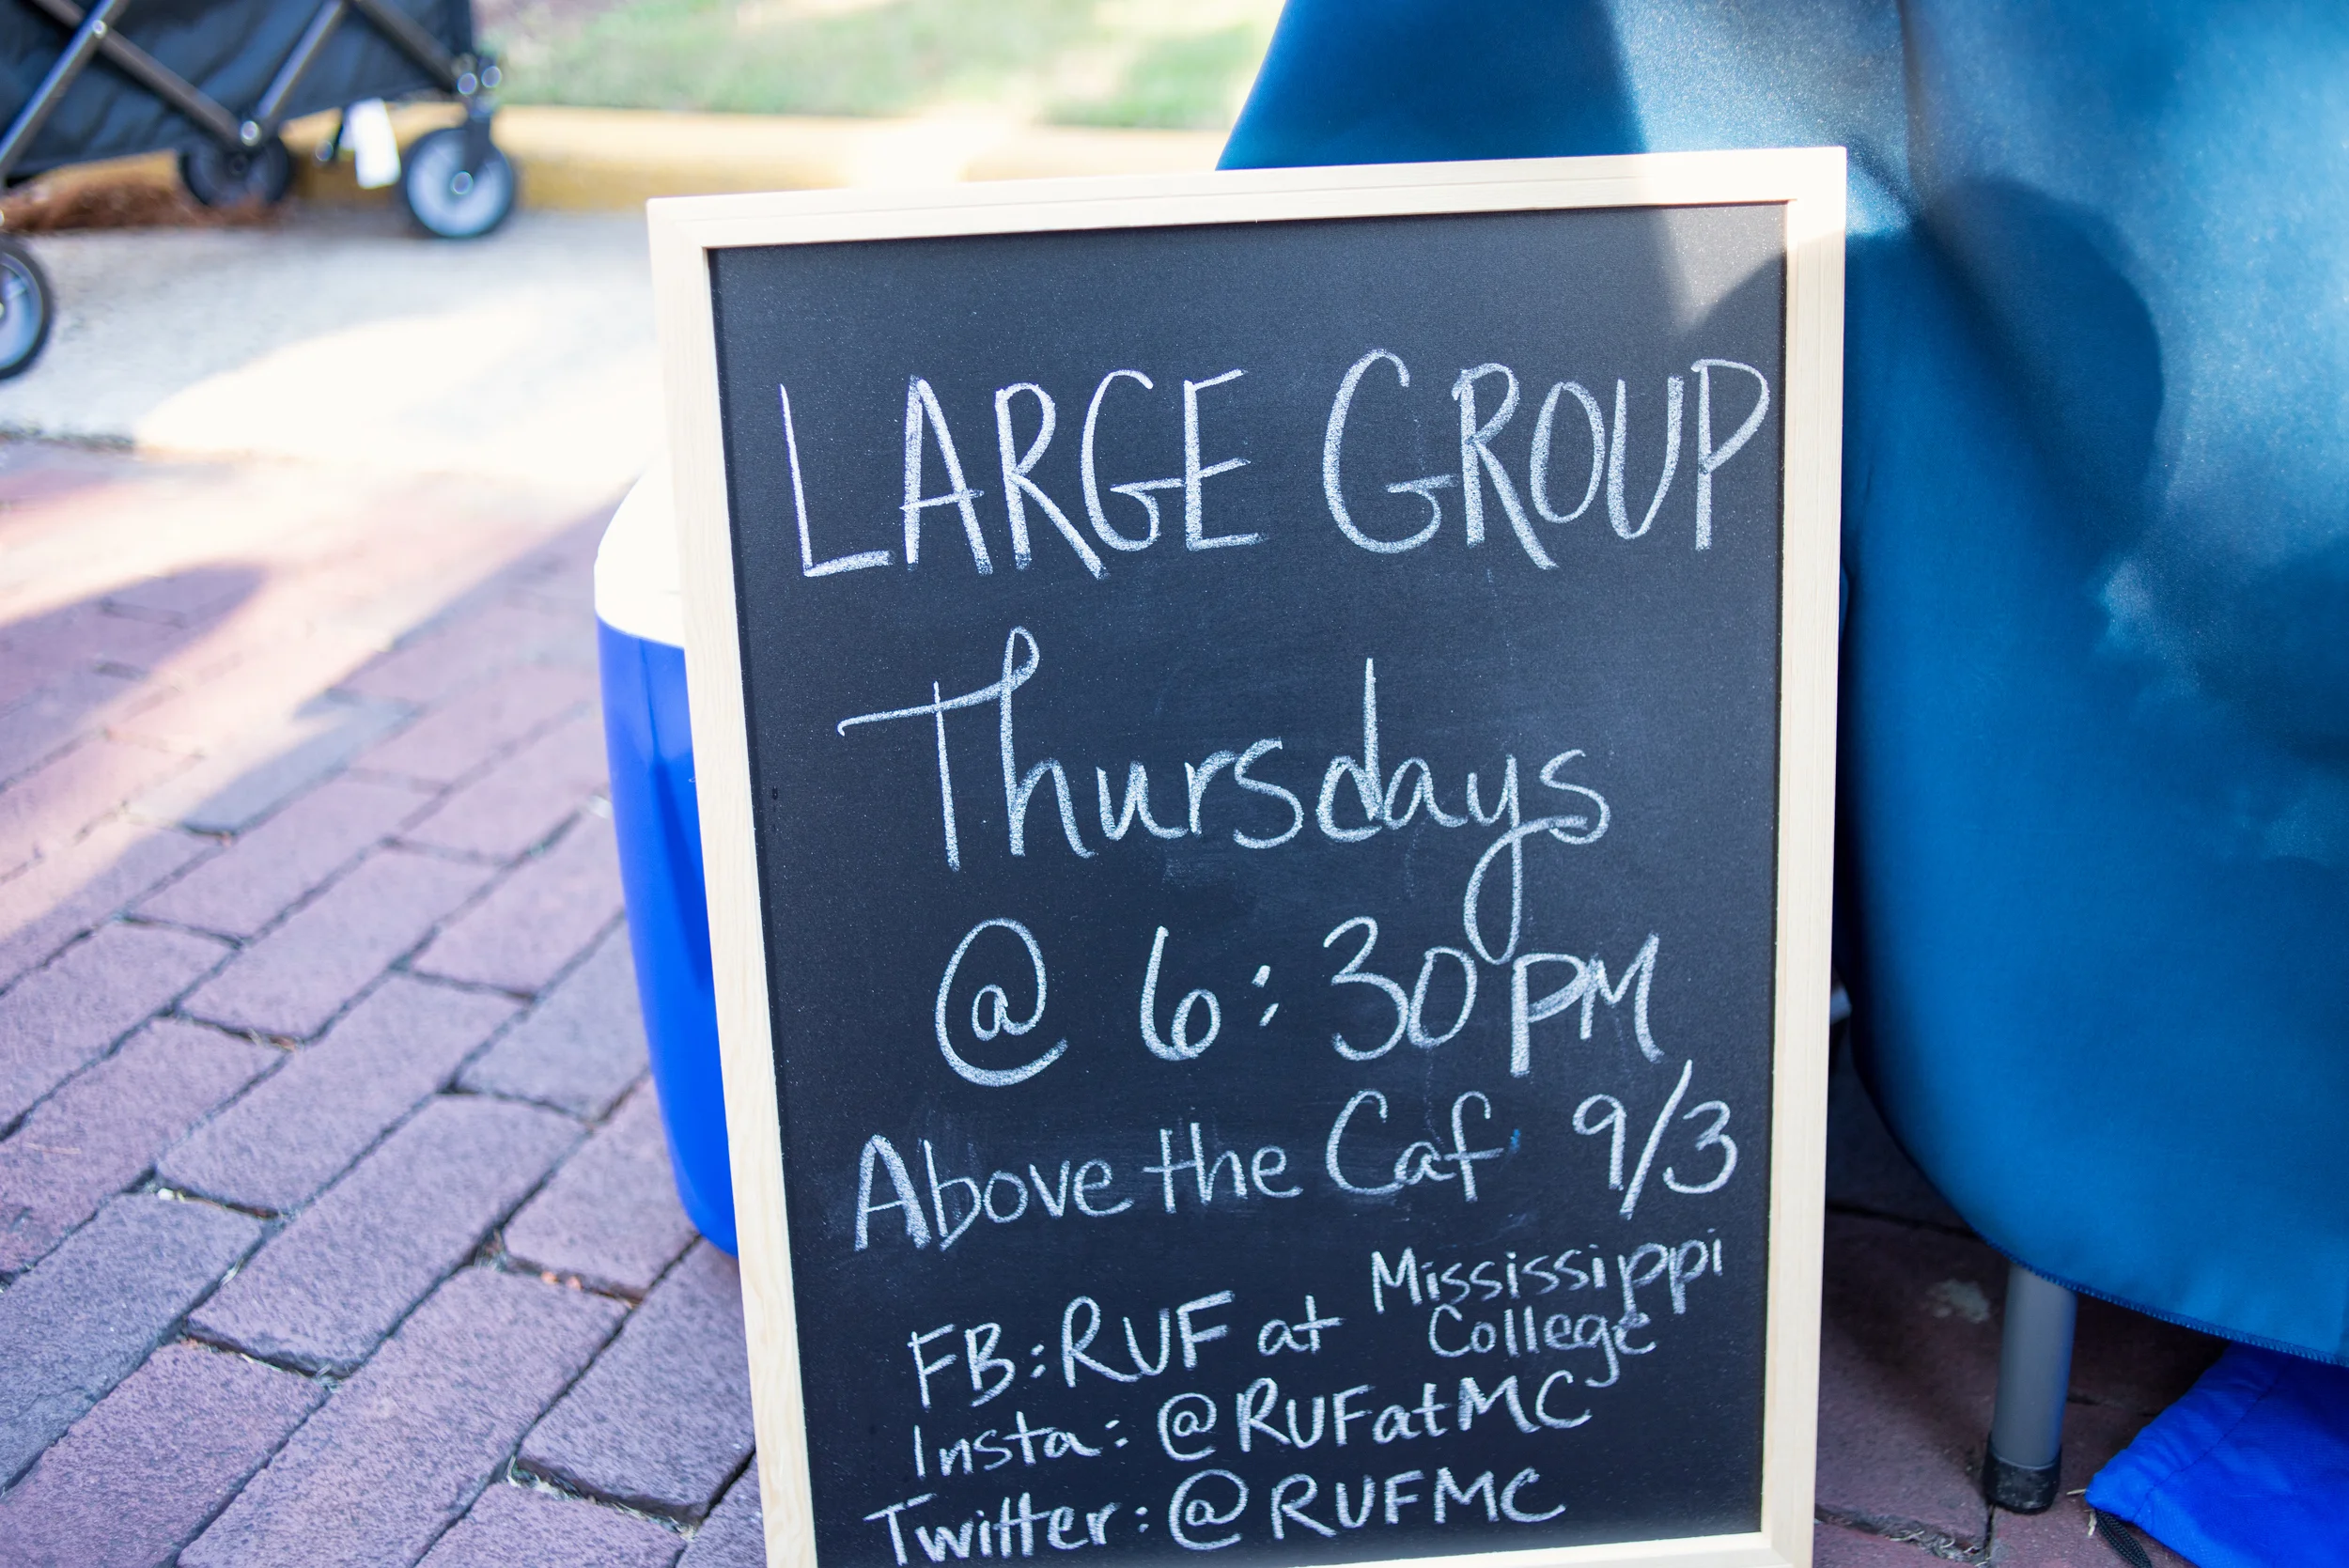 LARGE GROUP
Thursdays
@ 6:30PM
Above the Caf 9/3
FB: RUF at Mississippi
College
Insta: @RUFatMC
Twitter: @RUFMC